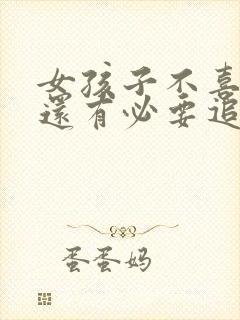 女孩子不喜
還有必要追
蛋蛋妈